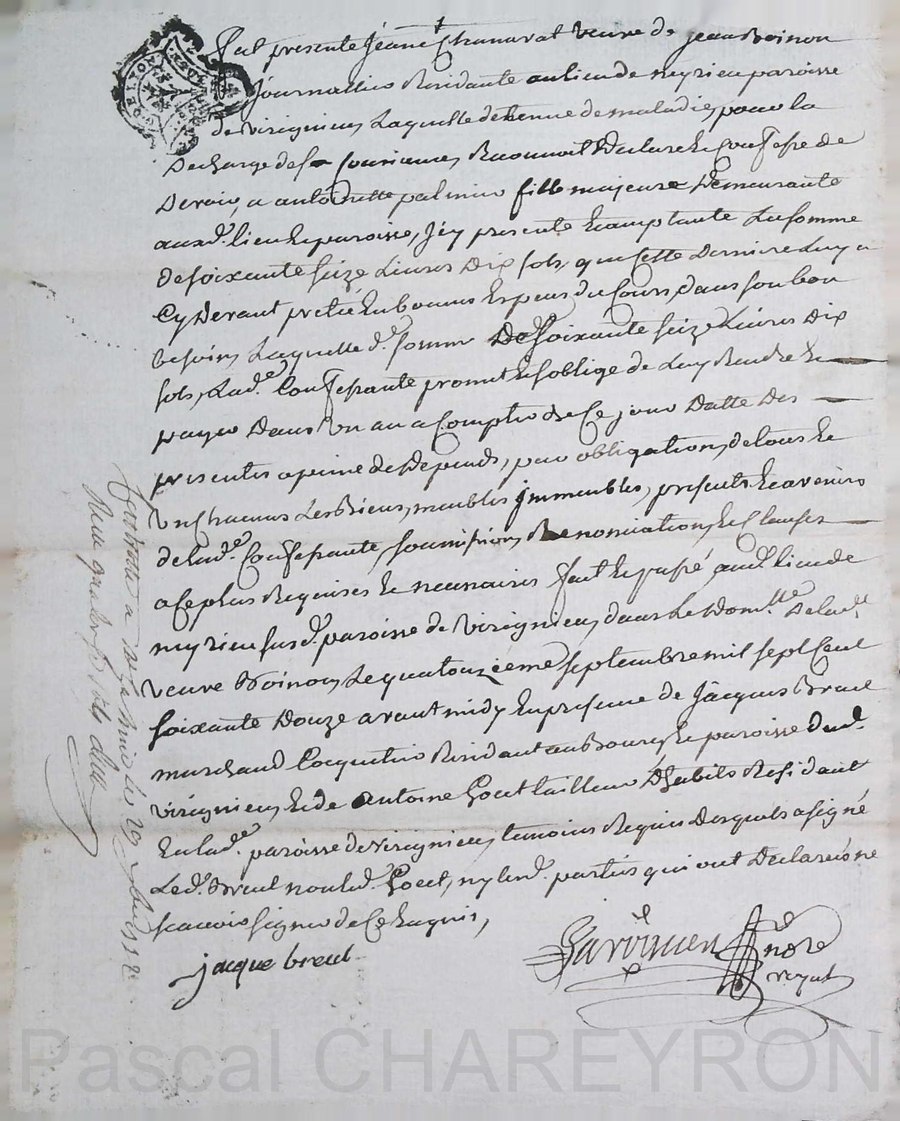 fut presente Jeane Chanavat veuve de Jean Boinon
journallier Residante au lieu de neyrieu paroisse
de virignieu, Laquelle detenue de maladie, pour la
Decharge de sa Consciance, Reconnoit Declare Et Confesse de
Devoir, a antoinette palmier fille majeure Demeurante
aux d. lieu Et paroisse, Icy presente Et acceptante La somme
de soixante seize Livres Dix sols, que Cette Derniere Luy a
Cy Devant preté En bonnes Especes du Cours, dans son bon
besoin, Laquelle d.e somme De soixante seize Livres Dix
sols, Lad.e Confessante promet Et s'oblige de Luy Rendre Et
payer Dans Un an a Compter de Ce jour Datte Des
presentes a peine de Depends, par obligation, de tous Et
Un Chacuns Les Biens, meubles jmmeubles, presents Et avenirs
de Lad.e Confessante, soumissions, Renonciations, Et Clauses
a Ce plus Requises Et necessaires fait Et passé aud. lieu de
neyrieu sus d. paroisse de virignieu, dans Le Dom.lle De lad.e
veuve Boinon, Le quatorzieme septembre mil sept Cent
soixante Douze avant midy En presence de Jacques Breul
marchand Coquetier Residant au Bourg Et paroisse dud.
virignieu, Et de antoine Goet tailleur D'habits Residant
En lad.e paroisse de virignieu, temoins Requis Desquels a signé
Led. Breul non led. Goet, ny lesd. parties qui ont Declaré ne
scavoir signer de Ce Enquis,
jacque breul
nore
royal